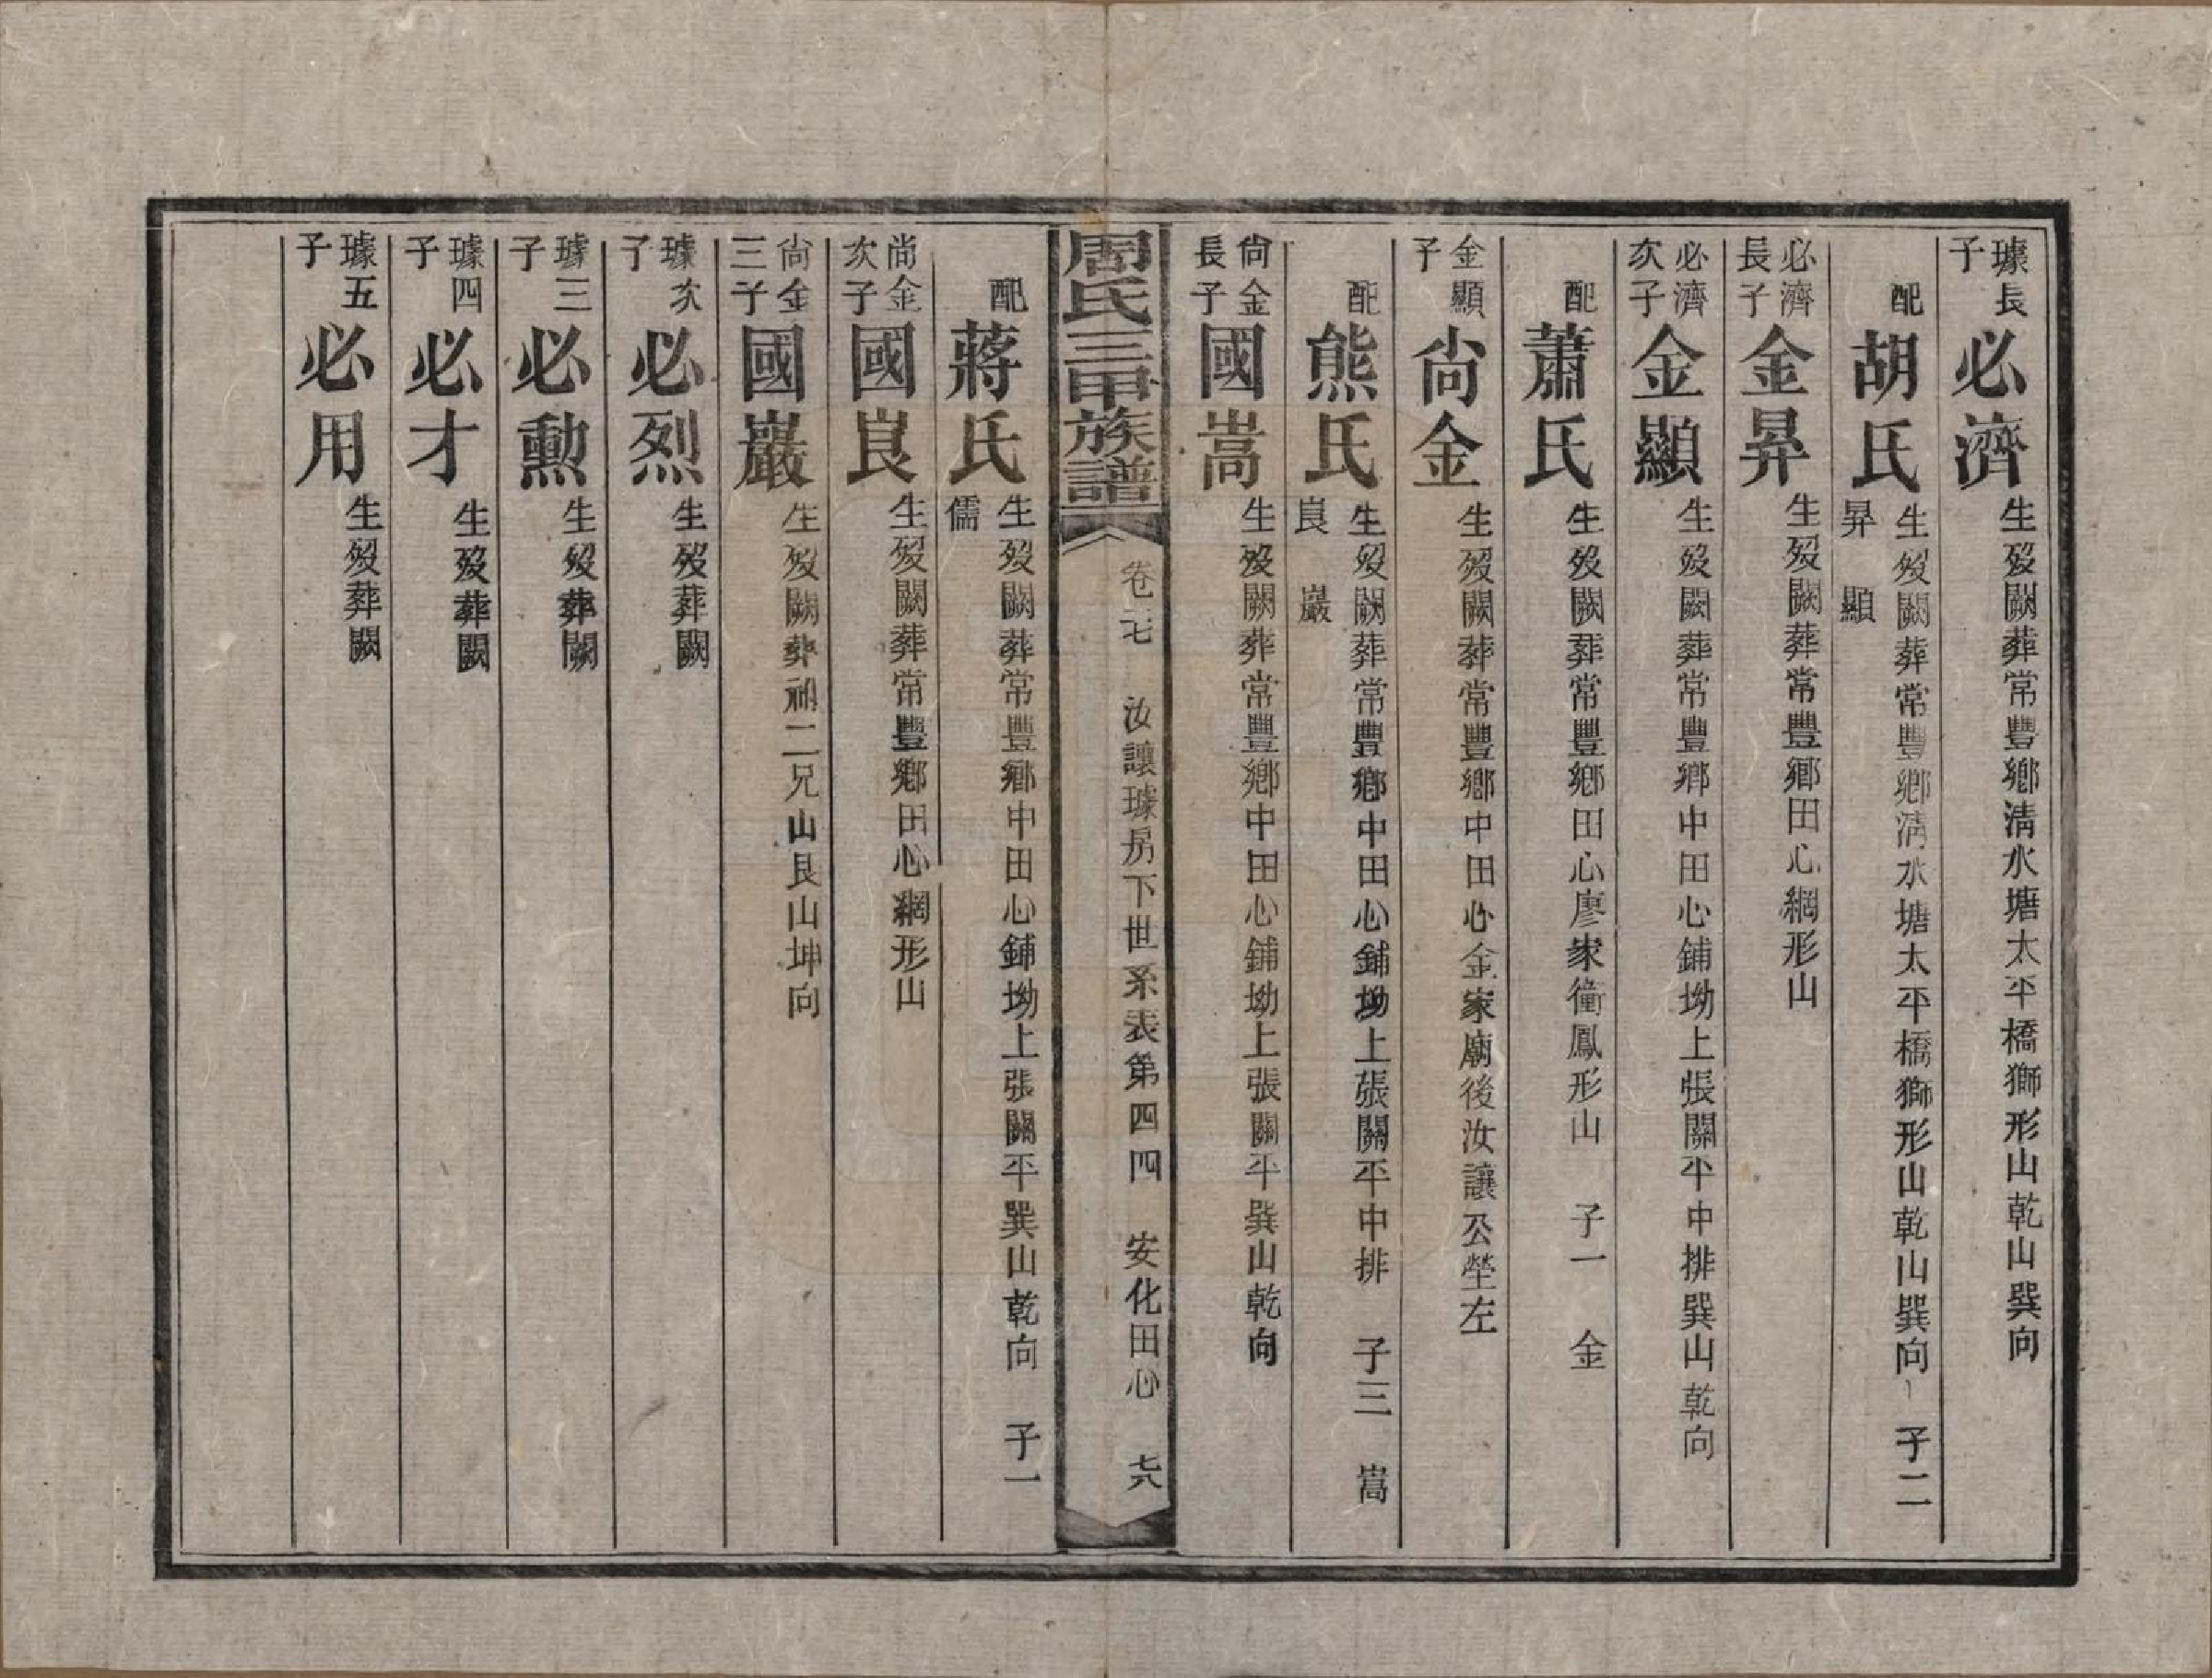 璩長子 必濟 生歿闕葬常豐鄉淸水塘太平橋獅形山乾山巽向
配 胡氏 生歿闕葬常豐鄉淸水塘太平橋獅形山乾山巽向 子二 昇 顯
必濟長子 金昇 生歿闕葬常豐鄉田心網形山
必濟次子 金顯 生歿闕葬常豐鄉中田心鋪坳上張關平中排巽山乾向
配 蕭氏 生歿闕葬常豐鄉田心廖家衝鳳形山 子一 金
金顯子 尙金 生歿闕葬常豐鄉中田心金家廟後汝讓公塋左
配 熊氏 生歿闕葬常豐鄉中田心鋪坳上張關平中排 子三 嵩 崀 巖
尙金長子 國嵩 生歿闕葬常豐鄉中田心鋪坳上張關平巽山乾向
周氏三甲族譜 卷二七 汝讓璩房下世系表第四四 安化田心 六七
配 蔣氏 生歿闕葬常豐鄉中田心鋪坳上張關平巽山乾向 子一 儒
尙金次子 國崀 生歿闕葬常豐鄉田心網形山
尙金三子 國巖 生歿闕葬祔二兄山艮山坤向
璩次子 必烈 生歿葬闕
璩三子 必勳 生歿葬闕
璩四子 必才 生歿葬闕
璩五子 必用 生歿葬闕